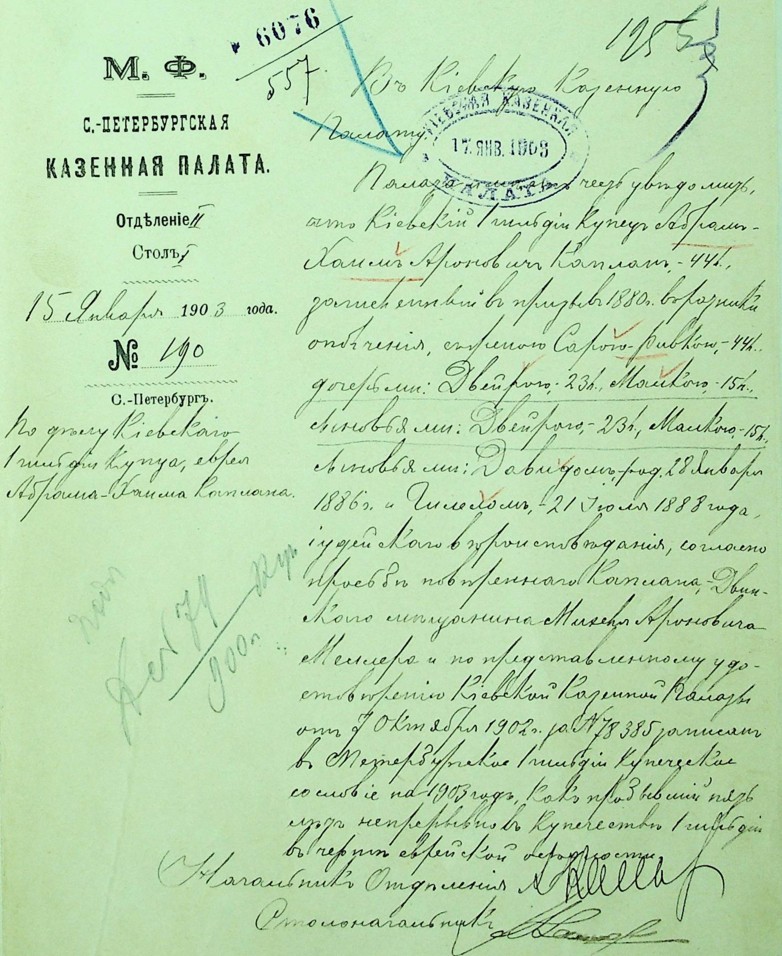 6076
557.
125
М. Ф.
С.-ПЕТЕРБУРГСКАЯ
КАЗЕННАЯ ПАЛАТА.
Отдѣленіе II
Столъ I
15 Января 1903 года.
№ 190
С.-Петербургъ.
По дѣлу Кіевскаго
1 гильдіи купца, еврея
Абрама-Хаима Каплана.
Въ Кіевскую Казенную
Палату
КІЕВСКАЯ КАЗЕННАЯ
17 ЯНВ. 1903
ПАЛАТА
Палата имѣетъ честь увѣдомить,
что Кіевскій 1 гильдіи купецъ Абрамъ-
Хаимъ Ароновичъ Капланъ, - 44 л.,
въ призывъ 1880 г. въ ратники
ополченія, съ женою Сарою-Ривкою, - 44 л.
дочерьми: Двейрою, - 23 л., Малкою, - 15 л.,
сыновьями: Двейрою, - 23 л., Малкою, - 15 л.,
сыновьями: Давидомъ, род. 28 Января
1886 г. и - 21 Іюля 1888 года,
іудейскаго вѣроисповѣданія, согласно
просьбѣ повѣреннаго Каплана, - Двин-
скаго мѣщанина Ароновича
и по представленному удо-
стовѣренію Кіевской Казенной Палаты
отъ 7 Октября 1902 г. за № 78385 записанъ
въ Петербургское 1 гильдіи купеческое
сословіе на 1903 годъ, какъ пробывшій пять
лѣтъ непрерывно въ купечествѣ 1 гильдіи
въ чертѣ еврейской осѣдлости.
Начальникъ Отдѣленія
Столоначальникъ